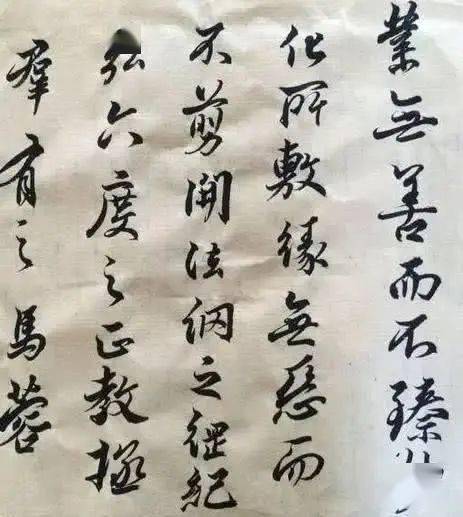 業無善而不臻
化所敷緣無惡而
不剪開法網之綱紀
弘六度之正教拯
羣有之馬蓉